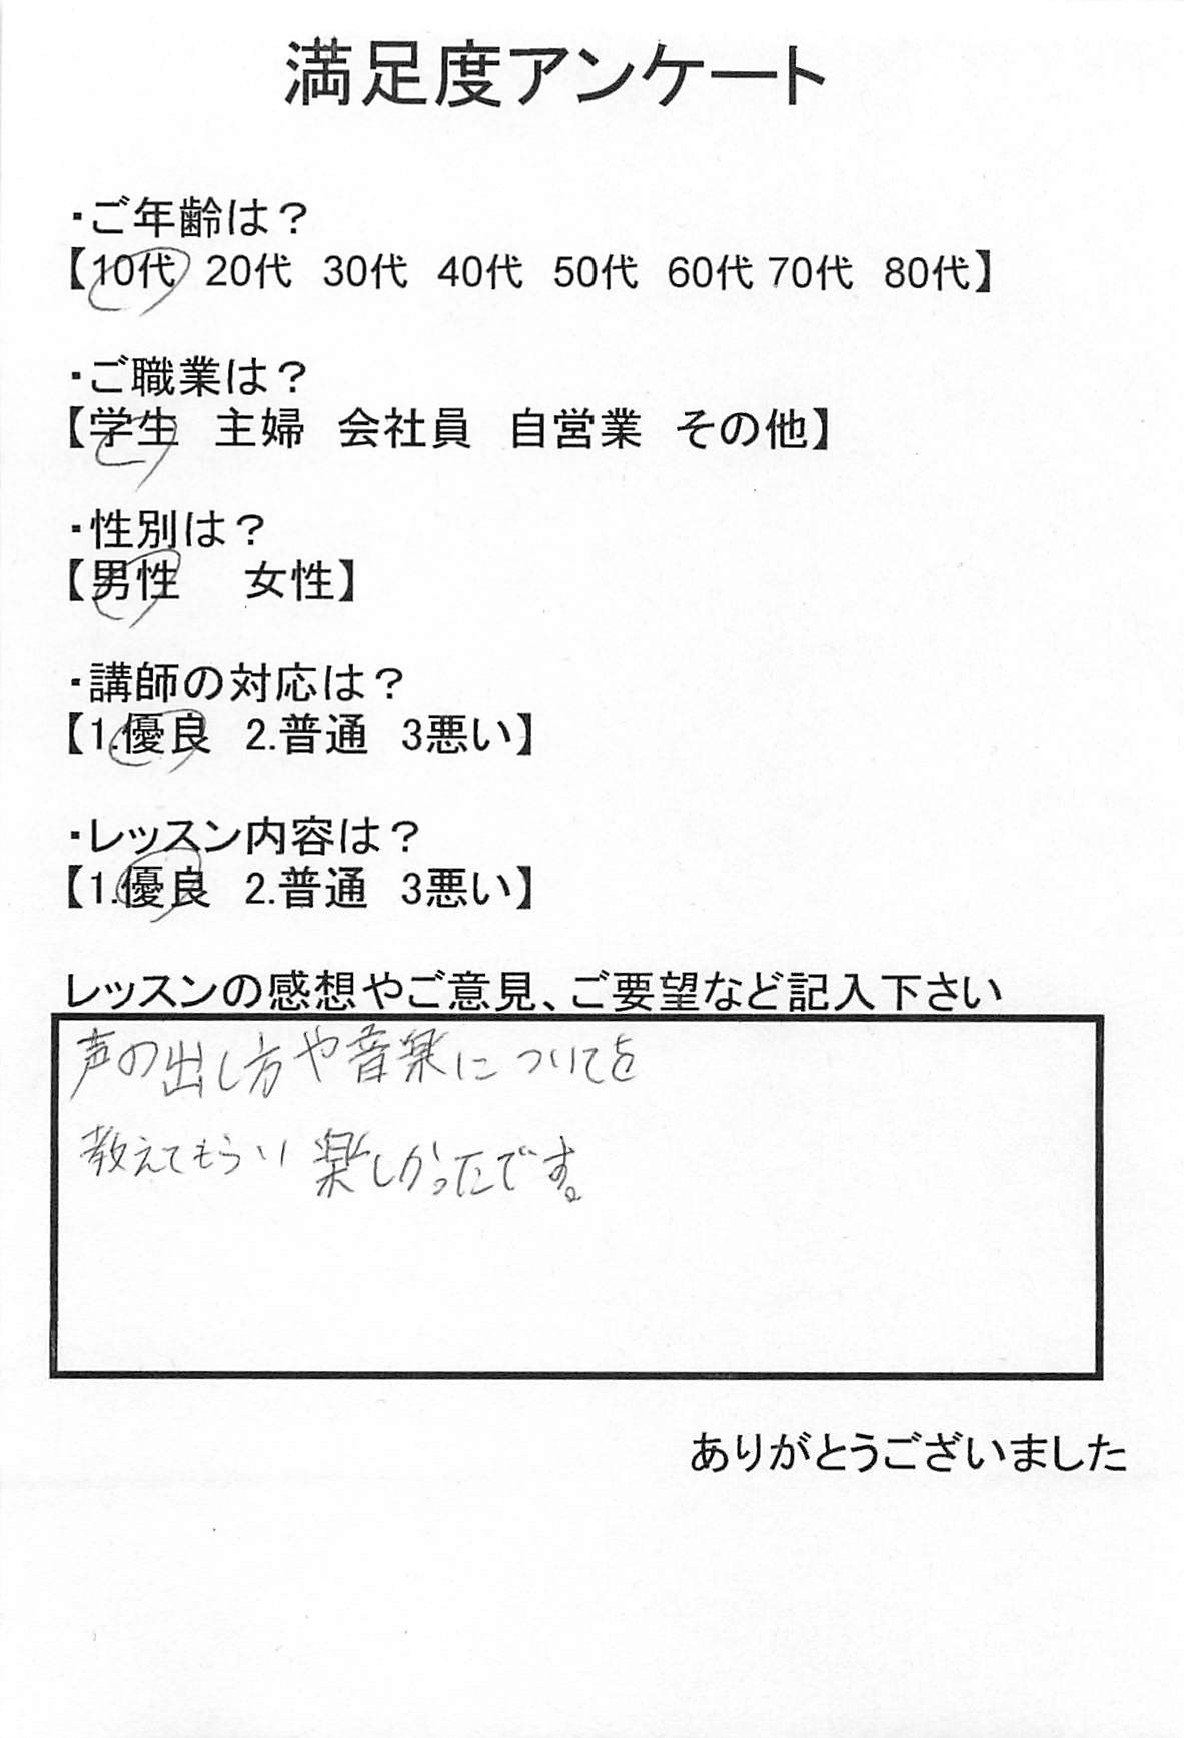 満足度アンケート
・ご年齢は？
【10代 20代 30代 40代 50代 60代 70代 80代】
・ご職業は？
【学生 主婦 会社員 自営業 その他】
・性別は？
【男性 女性】
・講師の対応は？
【1.優良 2.普通 3悪い】
・レッスン内容は？
【1.優良 2.普通 3悪い】
レッスンの感想やご意見、ご要望など記入下さい
声の出し方や音楽についてを
教えてもらい 楽しかったです。
ありがとうございました